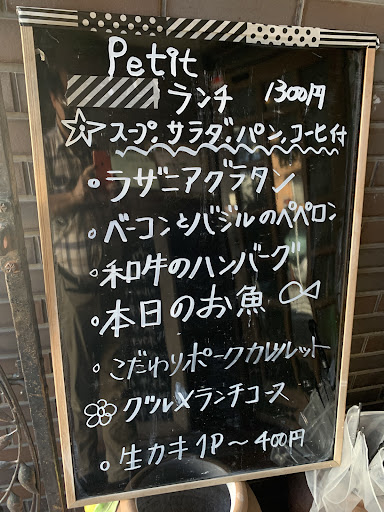 Petit
ランチ 1300円
スープ、サラダ、パン、コーヒ付
・ラザニアグラタン
・ベーコンとバジルのペペロン
・和牛のハンバーグ
・本日のお魚
・こだわりポークカルレット
グルメランチコース
・生カキ 1P〜400円